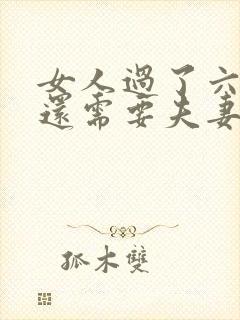 女人過了六
還需要夫妻
孤木雙